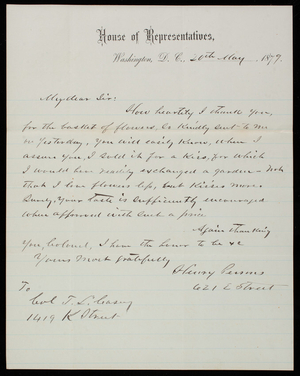 House of Representatives,
Washington, D. C., 20th May 1879.
My dear Sir:
How heartily I thank you,
for the basket of flowers, so kindly sent to me
on Yesterday, you will easily know, when I
assure you, I sold it for a Kiss, for which
I would have readily exchanged a garden - Not
that I love flowers less, but Kisses more.
Surely, your taste is sufficiently encouraged
when approved with such a price.
Again thanking
You, Colonel, I have the honor to be &c
Yours most gratefully
Henry Persons
621 E Street
To
Col T. L. Casey
1419 K Street